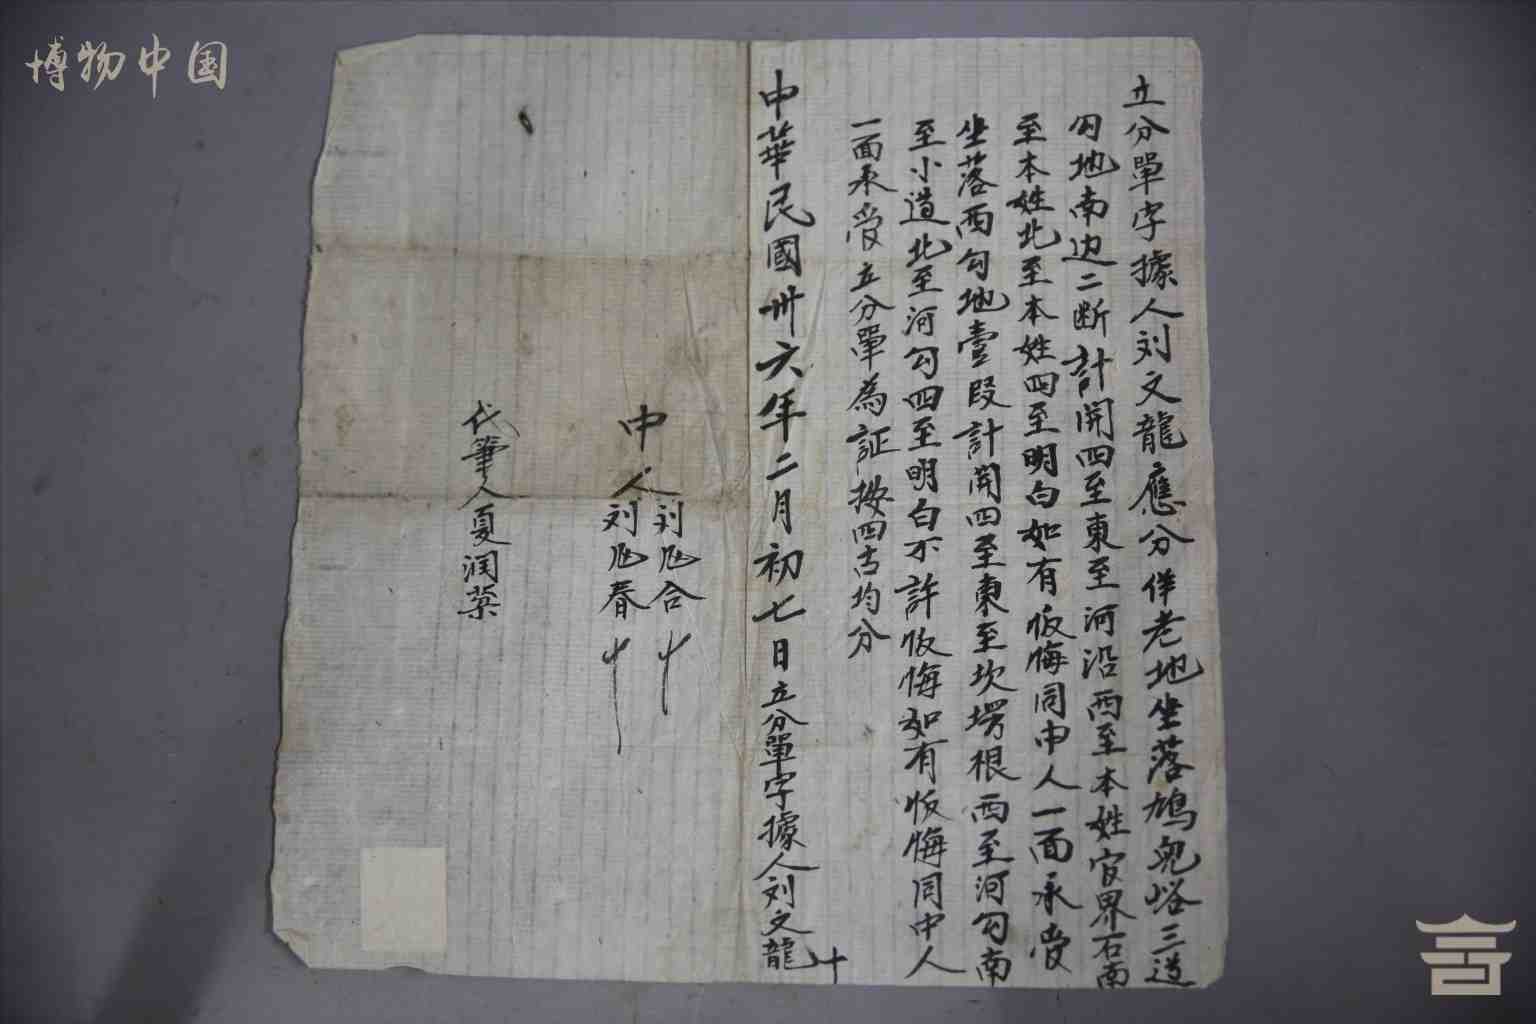 博物中国
立分單字據人刘文龍應分伴老地坐落鳩兒峪三道
勾地南边二断計開四至東至河沿西至本姓官界石南
至本姓北至本姓四至明白如有恢悔同中人一面承受
坐落西勾地壹段計開四至東至坎塄根西至河勾南
至小道北至河勾四至明白不許恢悔如有恢悔同中人
一面承受立分單為証按四古均分
中華民國卅六年二月初七日立分單字據人刘文龍 十
中人 刘 合
刘 春
代筆人夏润